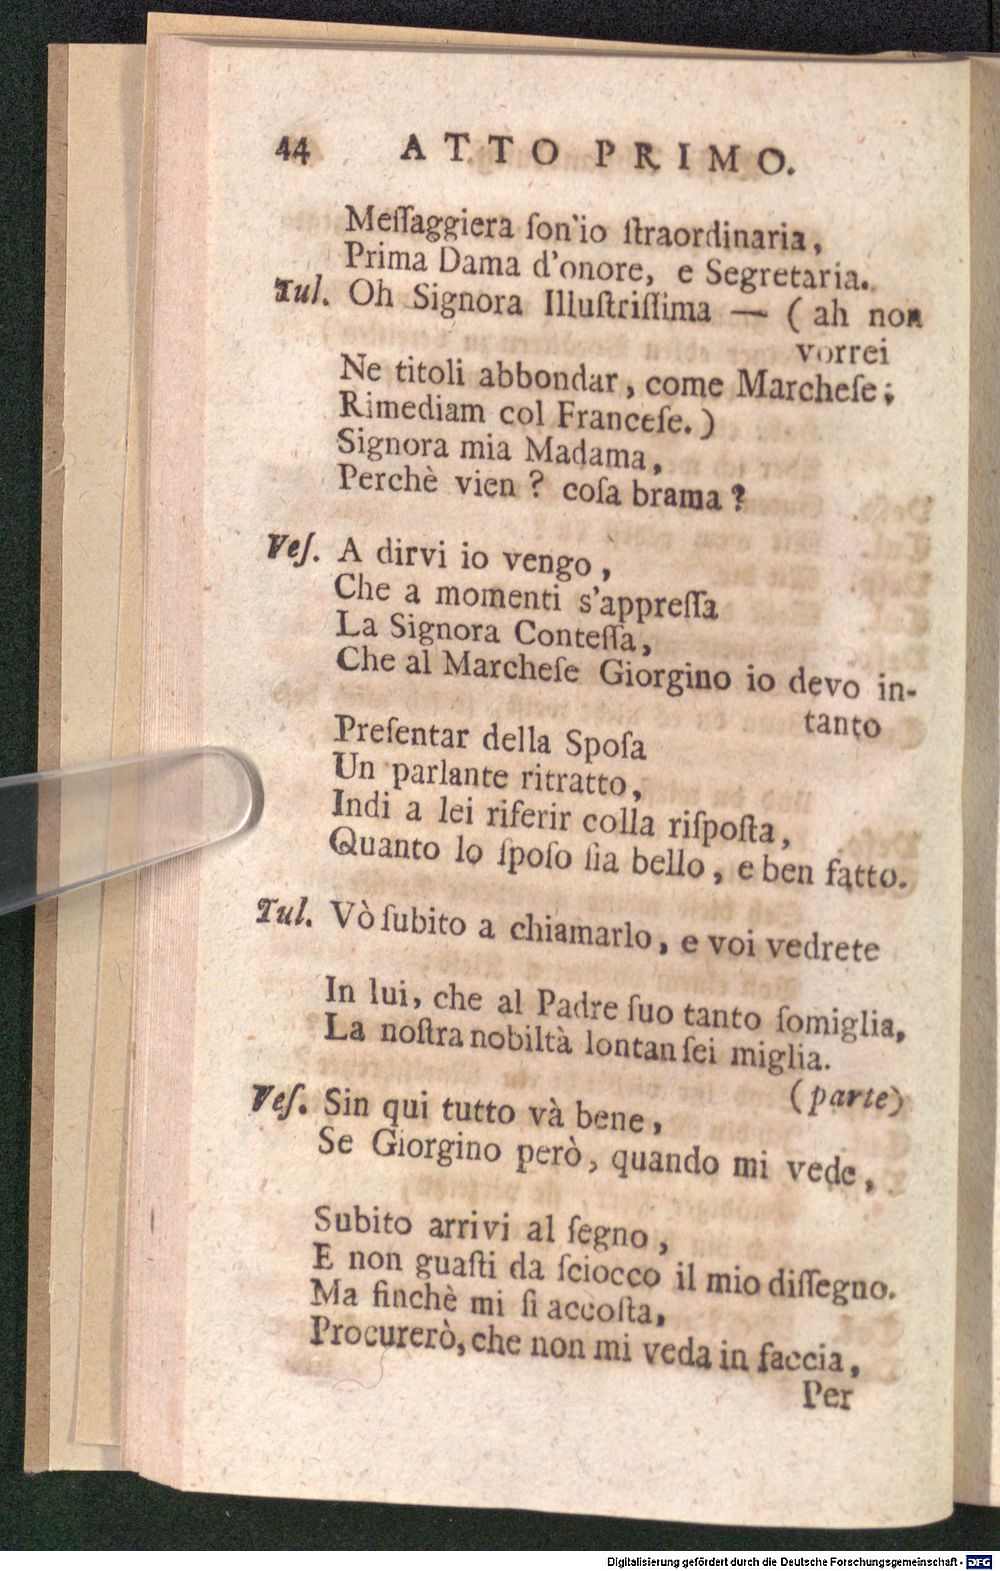 44 ATTO PRIMO.
Meſſaggiera ſon'io ſtraordinaria,
Prima Dama d'onore, e Segretaria.
Tul. Oh Signora Illuſtriſſima — ( ah non
vorrei
Ne titoli abbondar, come Marcheſe;
Rimediam col Franceſe.)
Signora mia Madama,
Perchè vien? coſa brama?
Veſ. A dirvi io vengo,
Che a momenti s'appreſſa
La Signora Conteſſa,
Che al Marcheſe Giorgino io devo in-
tanto
Preſentar della Spoſa
Un parlante ritratto,
Indi a lei riferir colla riſpoſta,
Quanto lo ſpoſo ſia bello, e ben fatto.
Tul. Vò ſubito a chiamarlo, e voi vedrete
In lui, che al Padre ſuo tanto ſomiglia,
La noſtra nobiltà lontan ſei miglia.
(parte)
Veſ. Sin qui tutto và bene,
Se Giorgino però, quando mi vede,
Subito arrivi al ſegno,
E non guaſti da ſciocco il mio diſſegno.
Ma finchè mi ſi accoſta,
Procurerò, che non mi veda in faccia,
Per
Digitalisierung gefördert durch die Deutsche Forschungsgemeinschaft - DFG